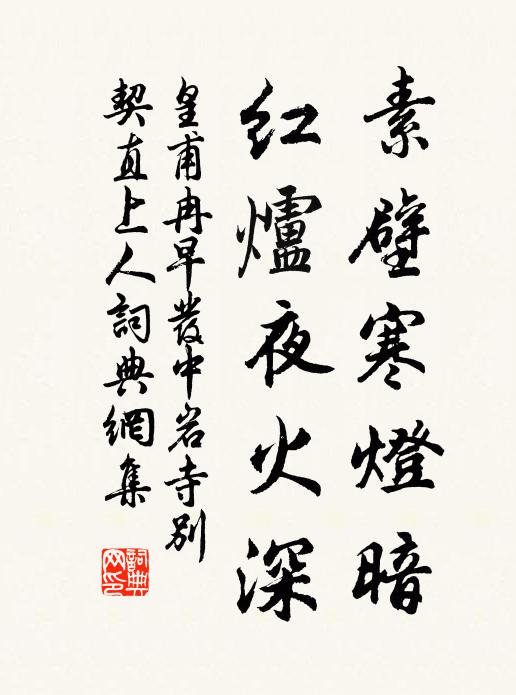 素壁寒燈暗
紅爐夜火深
皇甫冉早發中岩寺別
契直上人詞典網集
詞典网印